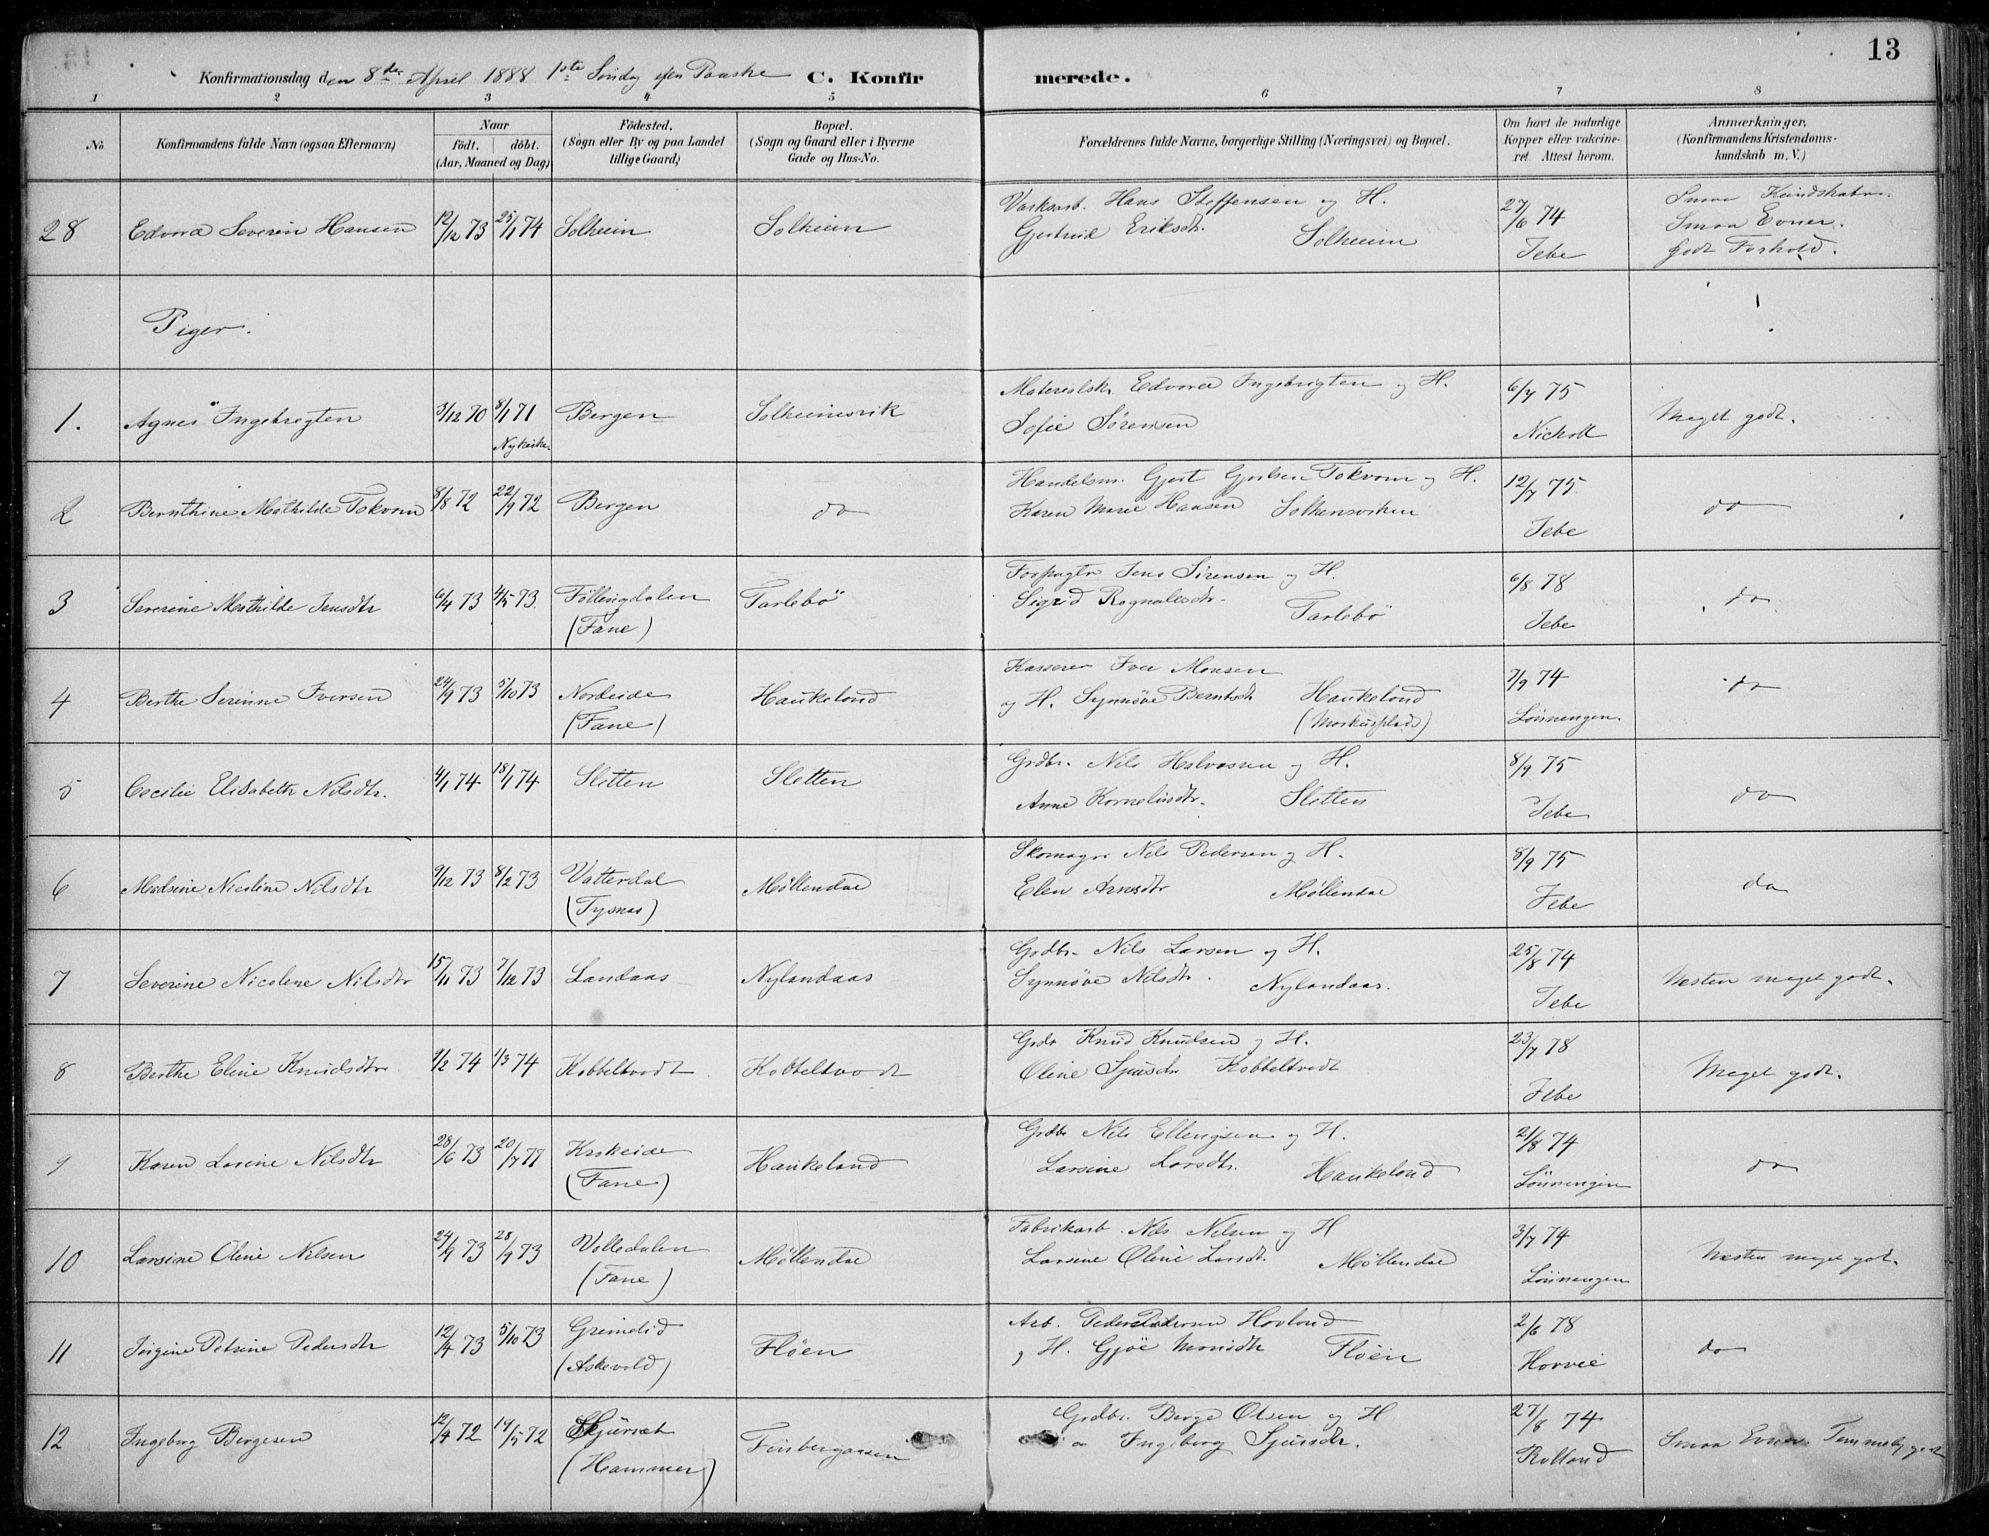 13
Konfirmationsdag den 8de April 1888 1ste Søndag efter Paaske C. Konfirmerede.
1 2 3 4 5 6 7 8
No
Konfirmandens fulde Navn (ogsaa Efternavn)
Naar
födt. döbt.
(Aar, Maaned og Dag)
Födested.
(Sogn eller By og paa Landet
tillige Gaard)
Bopæl.
(Sogn og Gaard eller i Byerne
Gade og Hus-No.
Forældrenes fulde Navne, borgerlige Stilling (Næringsvei) og Bopæl.
Om havt de naturlige
Kopper eller vakcine-
ret Attest herom.
Anmærkninger.
(Konfirmandens Kristendoms-
kundskab m. V.)
28 Edvard Severin Hansen 12/12 73 25/1 74 Solheim Solheim
Hans Steffensen og H.
Gjertrud Eriksdtr. Solheim
27/6 74
Jebe
Smaa Kundskaber.
Smaa Evner.
Godt Forhold.
Piger.
1. Agnes Ingebrigten 3/12 70 8/1 71 Bergen Solheimsvik
Nykirke
Edvard Ingebrigten og H.
Sofie Sørensen
6/7 75
Nicholl
Meget godt.
2 Bernthine Mathilde Tokvam 8/8 72 22/9 72 Bergen do
Handelsm. Gjert Gjertsen Tokvam og H.
Karen Marie Hansen Solhemsviken
12/7 75
Jebe
do
3 Severine Mathilde Jensdtr 6/4 73 4/5 73 Föllingdalen Tarlebö
(Fane)
Forpagter Jens Sörensen og H.
Sigrid Rognaldsdtr. Tarlebö
6/8 78
Jebe
do
4 Berthe Serinne Iversen 24/9 73 5/10 73 Nordeide Haukeland
(Fane)
Kasserer Iver Monsen
og H. Synnöve Berntsdtr Haukeland
(Markusplads)
7/9 74
Lönningen.
do
5 Cecilie Elisabeth Nilsdtr. 4/1 74 18/1 74 Sletten Sletten
Grdbr. Nils Halvorsen og H.
Anne Korneliusdtr. Sletten
8/9 75
Jebe
do
6 Madsine Nicoline Nilsdtr 9/12 73 8/2 73 Vatterdal Möllendal
(Tysnæs)
Skomager Nils Pedersen og H.
Elen Arnsdtr Möllendal
8/9 75
Jebe
do
7 Severine Nicolene Nilsdtr 15/11 73 7/12 73 Landaas Nylandaas
Grdbr. Nils Larsen og H.
Synnöve Nilsdtr. Nylandaas.
25/8 74
Jebe
Næsten meget godt.
8 Berthe Eline Knudsdtr. 9/2 74 1/3 74 Kobbeltvedt Kobbeltvedt
Grdbr Knud Knudsen og H.
Oline Sjursdtr Kobbeltvedt
23/7 78
Jebe
Meget godt.
9 Karen Lovine Nilsdtr 28/6 73 20/7 77 Krokeide Haukeland
(Fane)
Grdbr Nils Ellengsen og H.
Larsine Larsdtr. Haukeland
21/8 74
Lönningen
do
10 Larsine Oline Nilsen 24/9 73 28/9 73 Valledalen Möllendal
(Fane)
Fabrikarb. Nils Nilsen og H
Larsine Oline Larsdtr. Möllendal
3/7 74
Lönningen
Næsten meget godt.
11 Jörgine Petrine Pedersdtr 12/4 73 5/10 73 Grimelid Flöen
(Askevold)
Arb. Peder Pedersen Hovland
og H. Gjöe Monsdtr Flöen
2/6 78
Horvei
do
12 Ingeborg Børgesen 12/4 72 14/5 72 (Hammer)
Grdbr. Børge Olsen og H
Ingeborg Sjursdtr.
27/8 74
Rolland
Smaa Evner. Temmelig godt